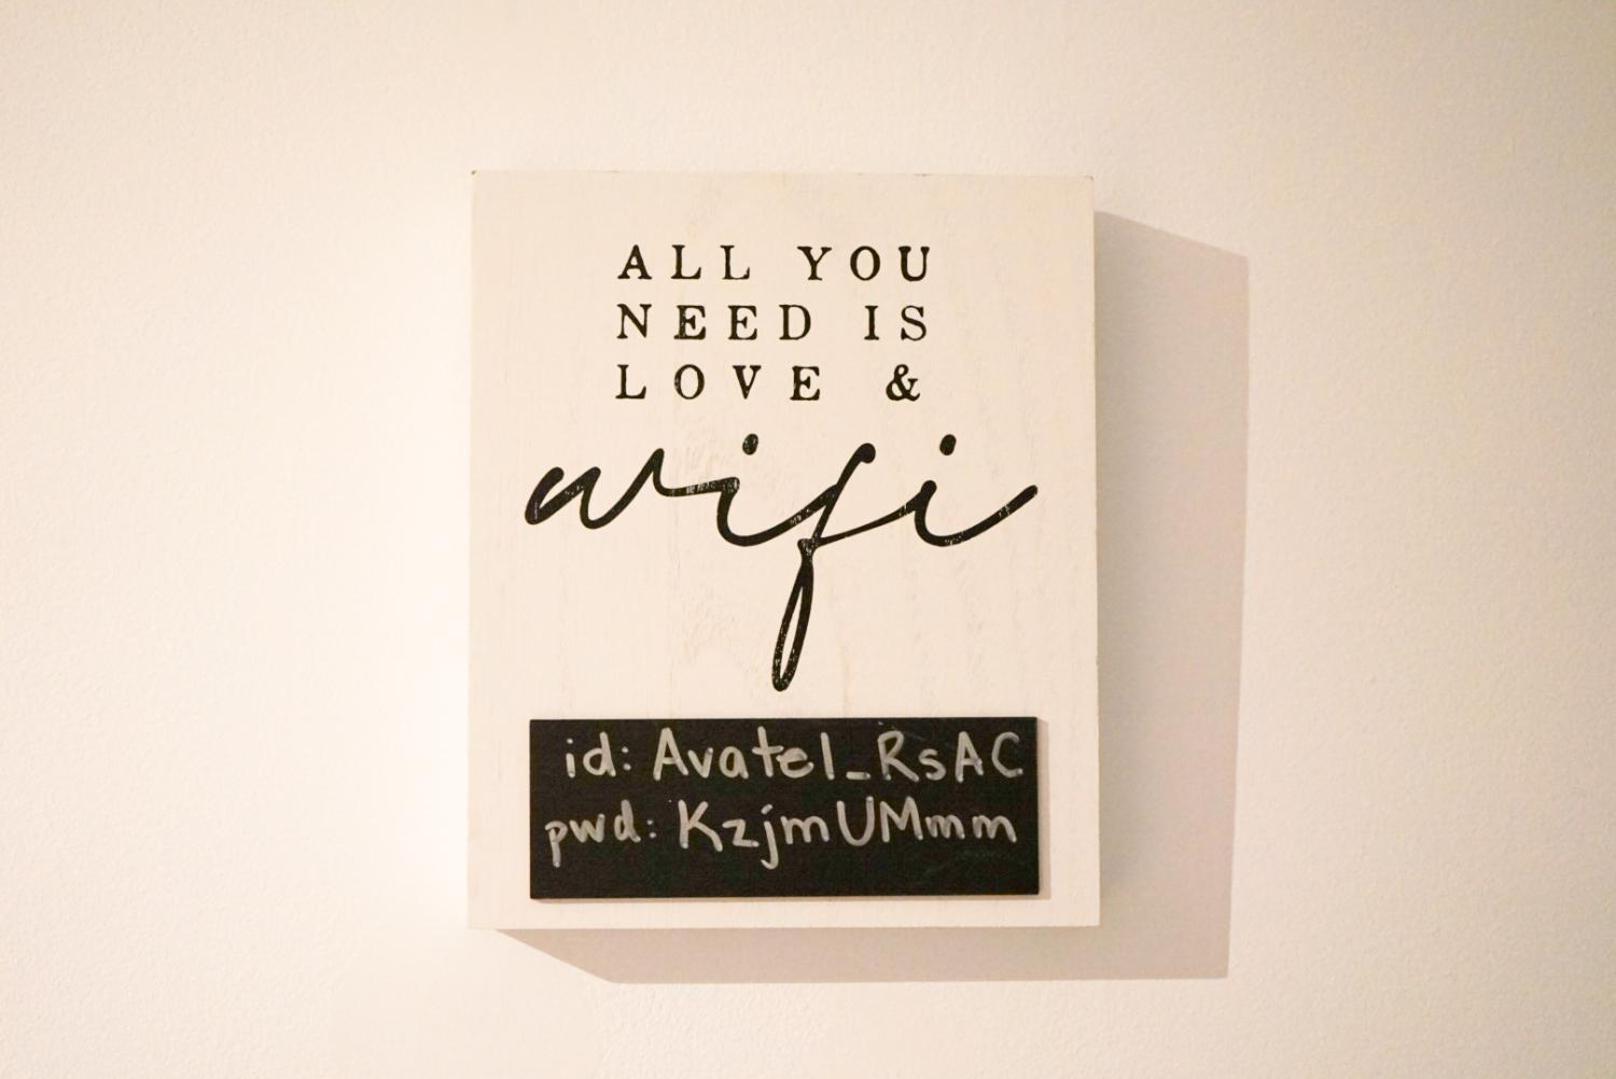 ALL YOU
NEED IS
LOVE &
wifi
id: Avatel_RsAC
pwd: KzjmUMmm